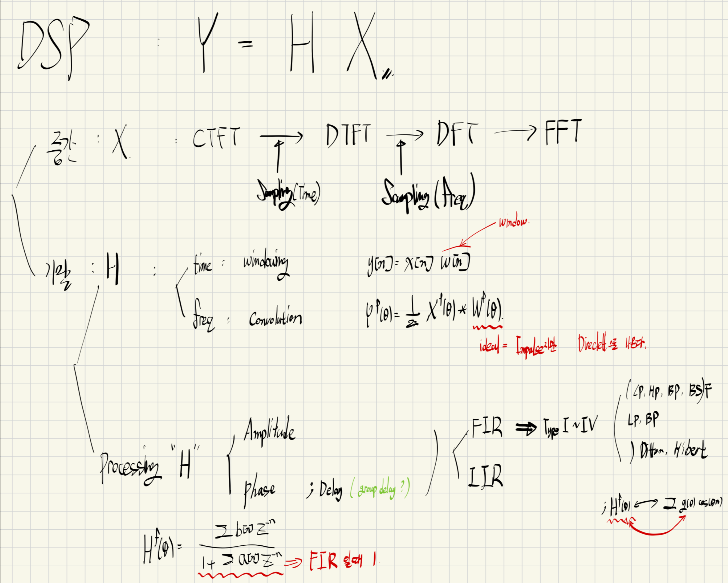 DSP : Y = H X
X : CTFT → DTFT → DFT → FFT
Sampling (Time) Sampling (freq)
window
H : time : windowing y[n] = x[n] w[n]
freq : Convolution Y^f(θ) = 1/2π X^f(θ) * W^f(θ)
ideal = Impulse
Processing "H" Amplitude
phase ; Delay (group delay?)
FIR ⇒ Type I ~ IV
IIR
(LP, HP, BP, BS)F
LP, BP
Hilbert
; H^f(θ) ↔ Σ g(n) cos(θn)
H^f(θ) =
⇒ FIR 일때 1